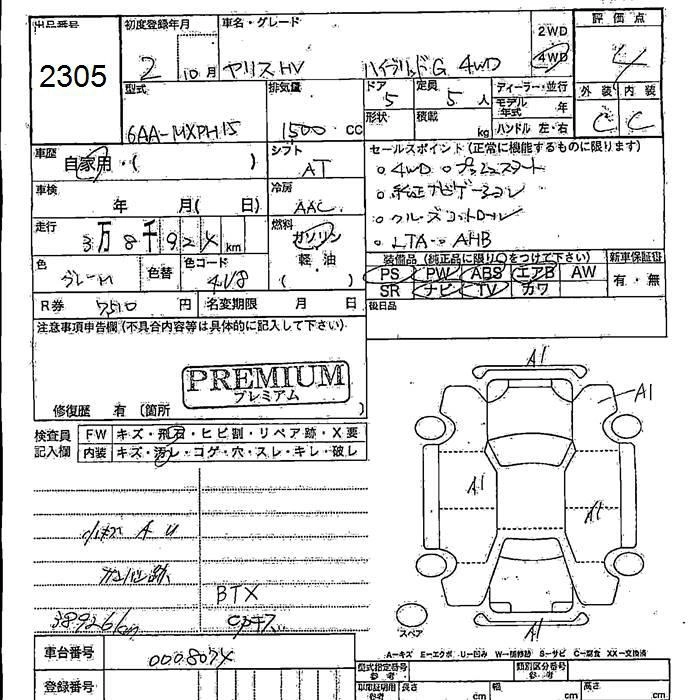 出品番号 初度登録年月 車名・グレード 2WD 評価点
2305 2 10月 ヤリスHV ハイブリッドG 4WD 4WD 4
型式 排気量 ドア 5 定員 5人 ディーラー・並行 外装 内装
6AA-MXPH15 1500 cc 形状 積載 kg モデル年式 年 C C
ハンドル 左・右
車歴 自家用・( ) シフト AT セールスポイント(正常に機能するものに限ります)
。4WD 。プッシュスタート
車検 年 月( 日) 冷房 AAC 。純正ナビゲーション
走行 3万8千92X km 燃料 ガソリン 。クルーズコントロール
軽油 。LTA・AHB
( )
色 色替 色コード 4V8 装備品(純正品に限り○をつけて下さい) 新車保証書
PS PW ABS エアB AW 有・無
R券 7510 円 名変期限 月 日 SR ナビ TV カワ
注意事項申告欄(不具合内容等は具体的に記入して下さい) 後日品
PREMIUM
プレミアム
修復歴 有(箇所 )
A1
A1
A1
A1
A1
検査員 FW キズ・飛石・ヒビ割・リペア跡・X要
記入欄 内装 キズ・汚レ・コゲ・穴・スレ・キレ・破レ
AU
BTX
38926km
スペア
A-キズ E-エクボ U-凹み W-補修跡 S-サビ C-腐食 XX-交換済
車台番号 000807X 型式指定番号 参考 類別区分番号 参考
登録番号 長さ cm 幅 cm 高さ cm